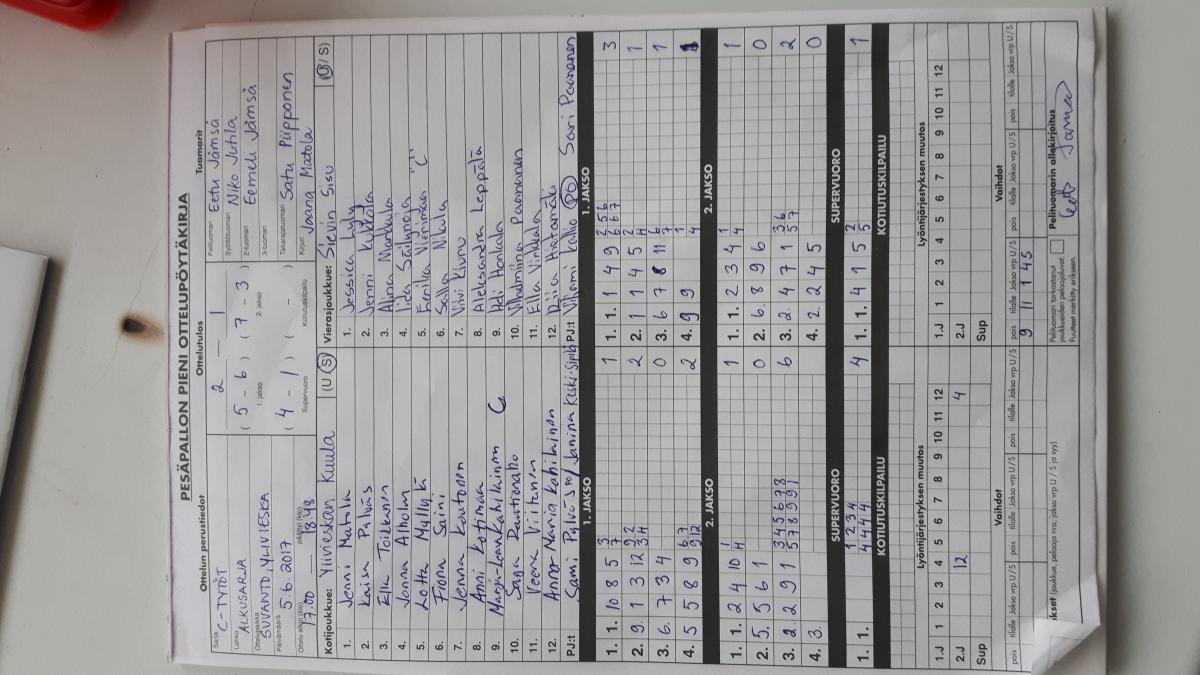 PESÄPALLON PIENI OTTELUPÖYTÄKIRJA
Ottelun perustiedot
Ottelutulos
Tuomarit
Sarja C-TYTÖT
Lohko ALKUSARJA
Ottelupaikka SUVANTO, YLIVIESKA
Päivämäärä 5.6.2017
Ottelu alkoi (klo) 17.00 päättyi (klo) 18.48
2 — 1
( 5 - 6 ) ( 7 - 3 )
1. jakso 2. jakso
( 4 - 1 ) ( - )
Supervuoro Kotiutuskilpailu
Pelituomari Eetu Jämsä
Syöttötuomari Niko Jutila
2-tuomari Eemeli Jämsä
3-tuomari
Takarajatuomari Satu Piipponen
Kirjuri Jaana Matola
Kotijoukkue: Ylivieskan Kuula (U / S)
Vierasjoukkue: Sievin Sisu (U / S)
1. Jenni Matola
2. Kaisa Palvás
3. Ella Toikkanen
4. Jonna Alholm
5. Lotta Myllylä
6. Fiona Saini
7. Jenna Kautonen
8. Anni Kotimaa
9. C
10. Saga Rautionaho
11. Veera Viitanen
12. Anna Kähkönen
PJ:t Sami Janina Keski-Sipilä
1. Jessica Lyly
2. Jenni Kukkola
3. Alina Markkula
4. Iida Säilynoja
5. Eerika Nieminen C
6. Salla Nikula
7. Viivi Klunu
8. Aleksandra Leppälä
9. Heli Honkala
10. Vilhelmiina Paananen
11. Ella Vinkkala
12. Riia Hietamäki
PJ:t Vihtori Kallio PJ Sari Paananen
1. JAKSO
1. JAKSO
1. 1. 10 8 5 3 7 1
2. 9 1 3 12 9 2 3 4 2
3. 6. 7 3 4 0
4. 5 5 8 9 6 7 9 12 2
1. 1. 1 4 9 2 5 6 6 6 7 3
2. 1 1 4 5 2 4 1
3. 6 7 8 11 6 7 1
4. 9 9 1 4 1
2. JAKSO
2. JAKSO
1. 1. 2 4 10 1 4 1
2. 5. 5 6 1 0
3. 2. 2 9 1 3 4 5 6 7 8 5 7 8 9 9 1 6
4. 3.
1. 1. 2 3 4 1 4 1
2. 6. 8 9 6 0
3. 2. 4 7 1 3 6 5 7 2
4. 2. 2 4 5 0
SUPERVUORO
SUPERVUORO
1. 1. 1 2 3 4 4 4 4 4 4
1. 1. 4 1 5 2 5 1
KOTIUTUSKILPAILU
KOTIUTUSKILPAILU
Lyöntijärjestyksen muutos
Lyöntijärjestyksen muutos
1.J 1 2 3 4 5 6 7 8 9 10 11 12
2.J 12 4
Sup
1.J 1 2 3 4 5 6 7 8 9 10 11 12
2.J
Sup
Vaihdot
Vaihdot
pois tilalle Jakso vrp U / S pois tilalle Jakso vrp U / S pois tilalle Jakso vrp U / S
pois tilalle Jakso vrp U / S pois tilalle Jakso vrp U / S pois tilalle Jakso vrp U / S
9 11 1 4 5
ukset (joukkue, pelaaja nro, jakso vrp U / S ja syy)
Pelituomari tarkastanut joukkueiden pelaajaluvat.
Puutteet merkitty erikseen.
Pelituomarin allekirjoitus